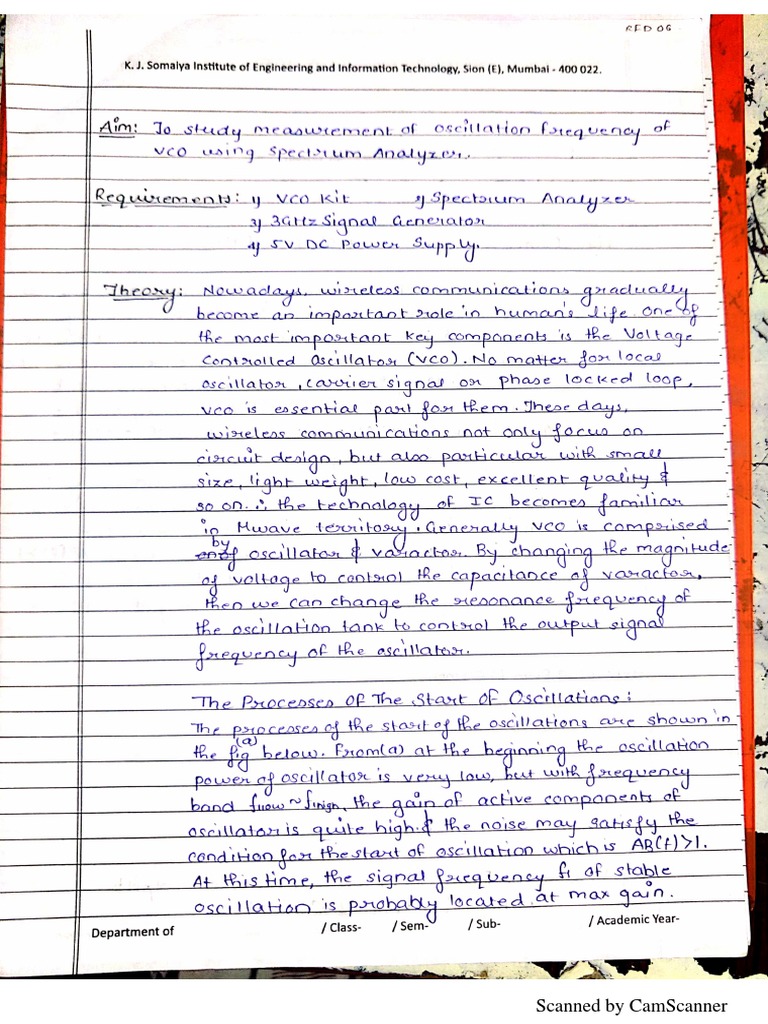 RFD 06
K. J. Somaiya Institute of Engineering and Information Technology, Sion (E), Mumbai - 400 022.
Aim: To study measurement of oscillation frequency of
VCO using Spectrum Analyzer.
Requirements: 1) VCO Kit 2) Spectrum Analyzer
3) 3GHz Signal Generator
4) 5V DC Power Supply.
Theory: Nowadays, wireless communications gradually
become an important role in human's life. One of
the most important key components is the Voltage
Controlled Oscillator (VCO). No matter for local
oscillator, carrier signal or phase locked loop,
VCO is essential part for them. These days,
wireless communications not only focus on
circuit design, but also particular with small
size, light weight, low cost, excellent quality &
so on. ∴ the technology of IC becomes familiar
in Mwave territory. Generally VCO is comprised
by oscillator & varactor. By changing the magnitude
of voltage to control the capacitance of varactor,
then we can change the resonance frequency of
the oscillation tank to control the output signal
frequency of the oscillator.
The Processes of The Start of Oscillations:
The processes of the start of the oscillations are shown in
the fig (a) below. From (a) at the beginning the oscillation
power of oscillator is very low, but with frequency
band flow ~ fhigh, the gain of active components of
oscillator is quite high & the noise may satisfy the
condition for the start of oscillation which is AB(f)>1.
At this time, the signal frequency f1 of stable
oscillation is probably located at max gain.
Department of / Class- / Sem- / Sub- / Academic Year-
Scanned by CamScanner